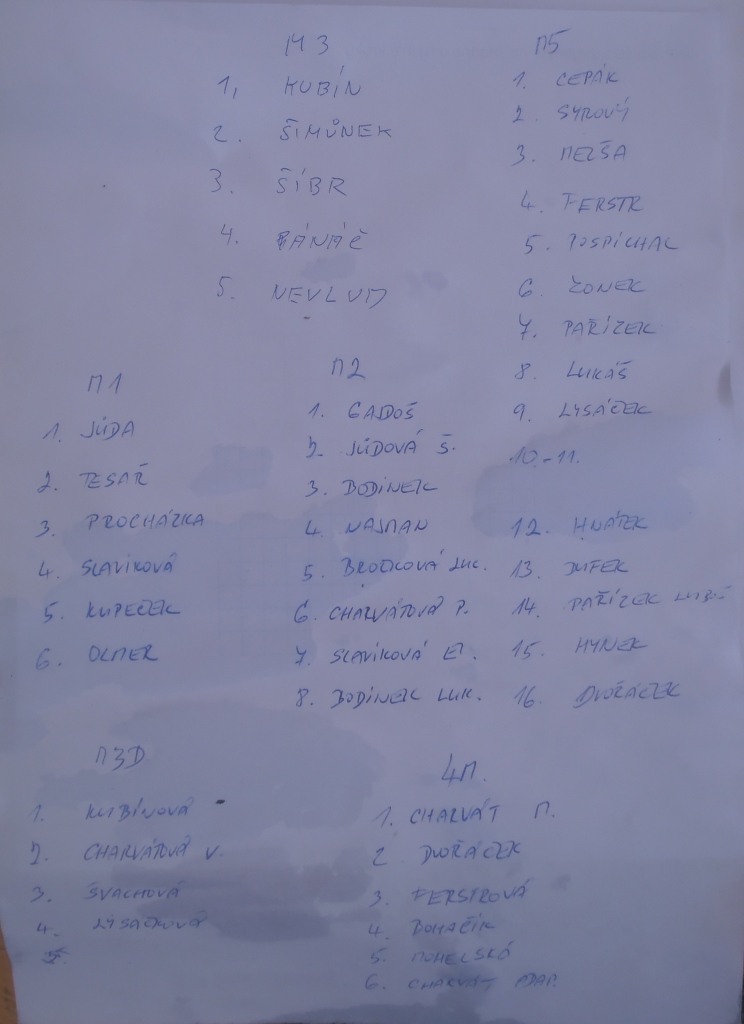 M3
1, KUBÍN
2. ŠIMŮNEK
3. ŠÍBR
4.
5. NEVLUD
M5
1. CEPÁK
2. SYROVÝ
3. MELŠA
4. FERSTR
5. POSPÍCHAL
6. ZONEK
7. PAŘÍZEK
8. LUKÁŠ
9. LYSÁČEK
10.-11.
12. HNÁTEK
13. DUFEK
14. PAŘÍZEK LUBOŠ
15. HYNEK
16. DVOŘÁČEK
M1
1. JŮDA
2. TESAŘ
3. PROCHÁZKA
4. SLAVÍKOVÁ
5. KUPEČEK
6. OLMER
M2
1. GAJDOŠ
2. JŮDOVÁ Š.
3. BODINEK
4. NAJMAN
5. BRODCOVÁ LUC.
6. CHARVÁTOVÁ P.
7. SLAVÍKOVÁ EM.
8. BODINEK LUK.
M3D
1. KUBÍNOVÁ
2. CHARVÁTOVÁ V.
3. ŠVACHOVÁ
4. LYSÁČKOVÁ
4M.
1. CHARVÁT M.
2 DVOŘÁČEK
3. FERSTROVÁ
4. BOHÁČIK
5.
6. CHARVÁT ADAM